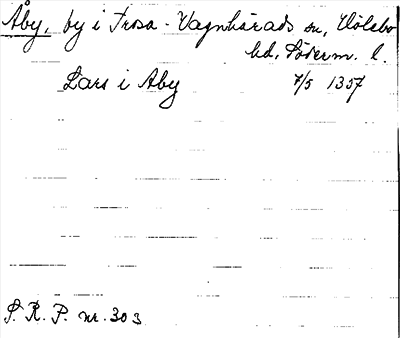 Åby, by i Trosa-Vagnhärads sn, Hölebo
hd, Söderm. l.
Lars i Aby 7/5 1357
S. R. P. nr. 303